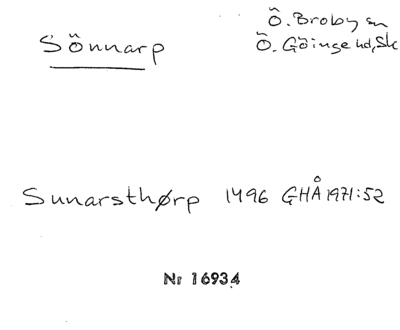 Sönnarp
Ö. Broby sn
Ö. Göinge hd, Sk
Sunarsthørp 1496 GHÅ 1971:52
Nr 16934